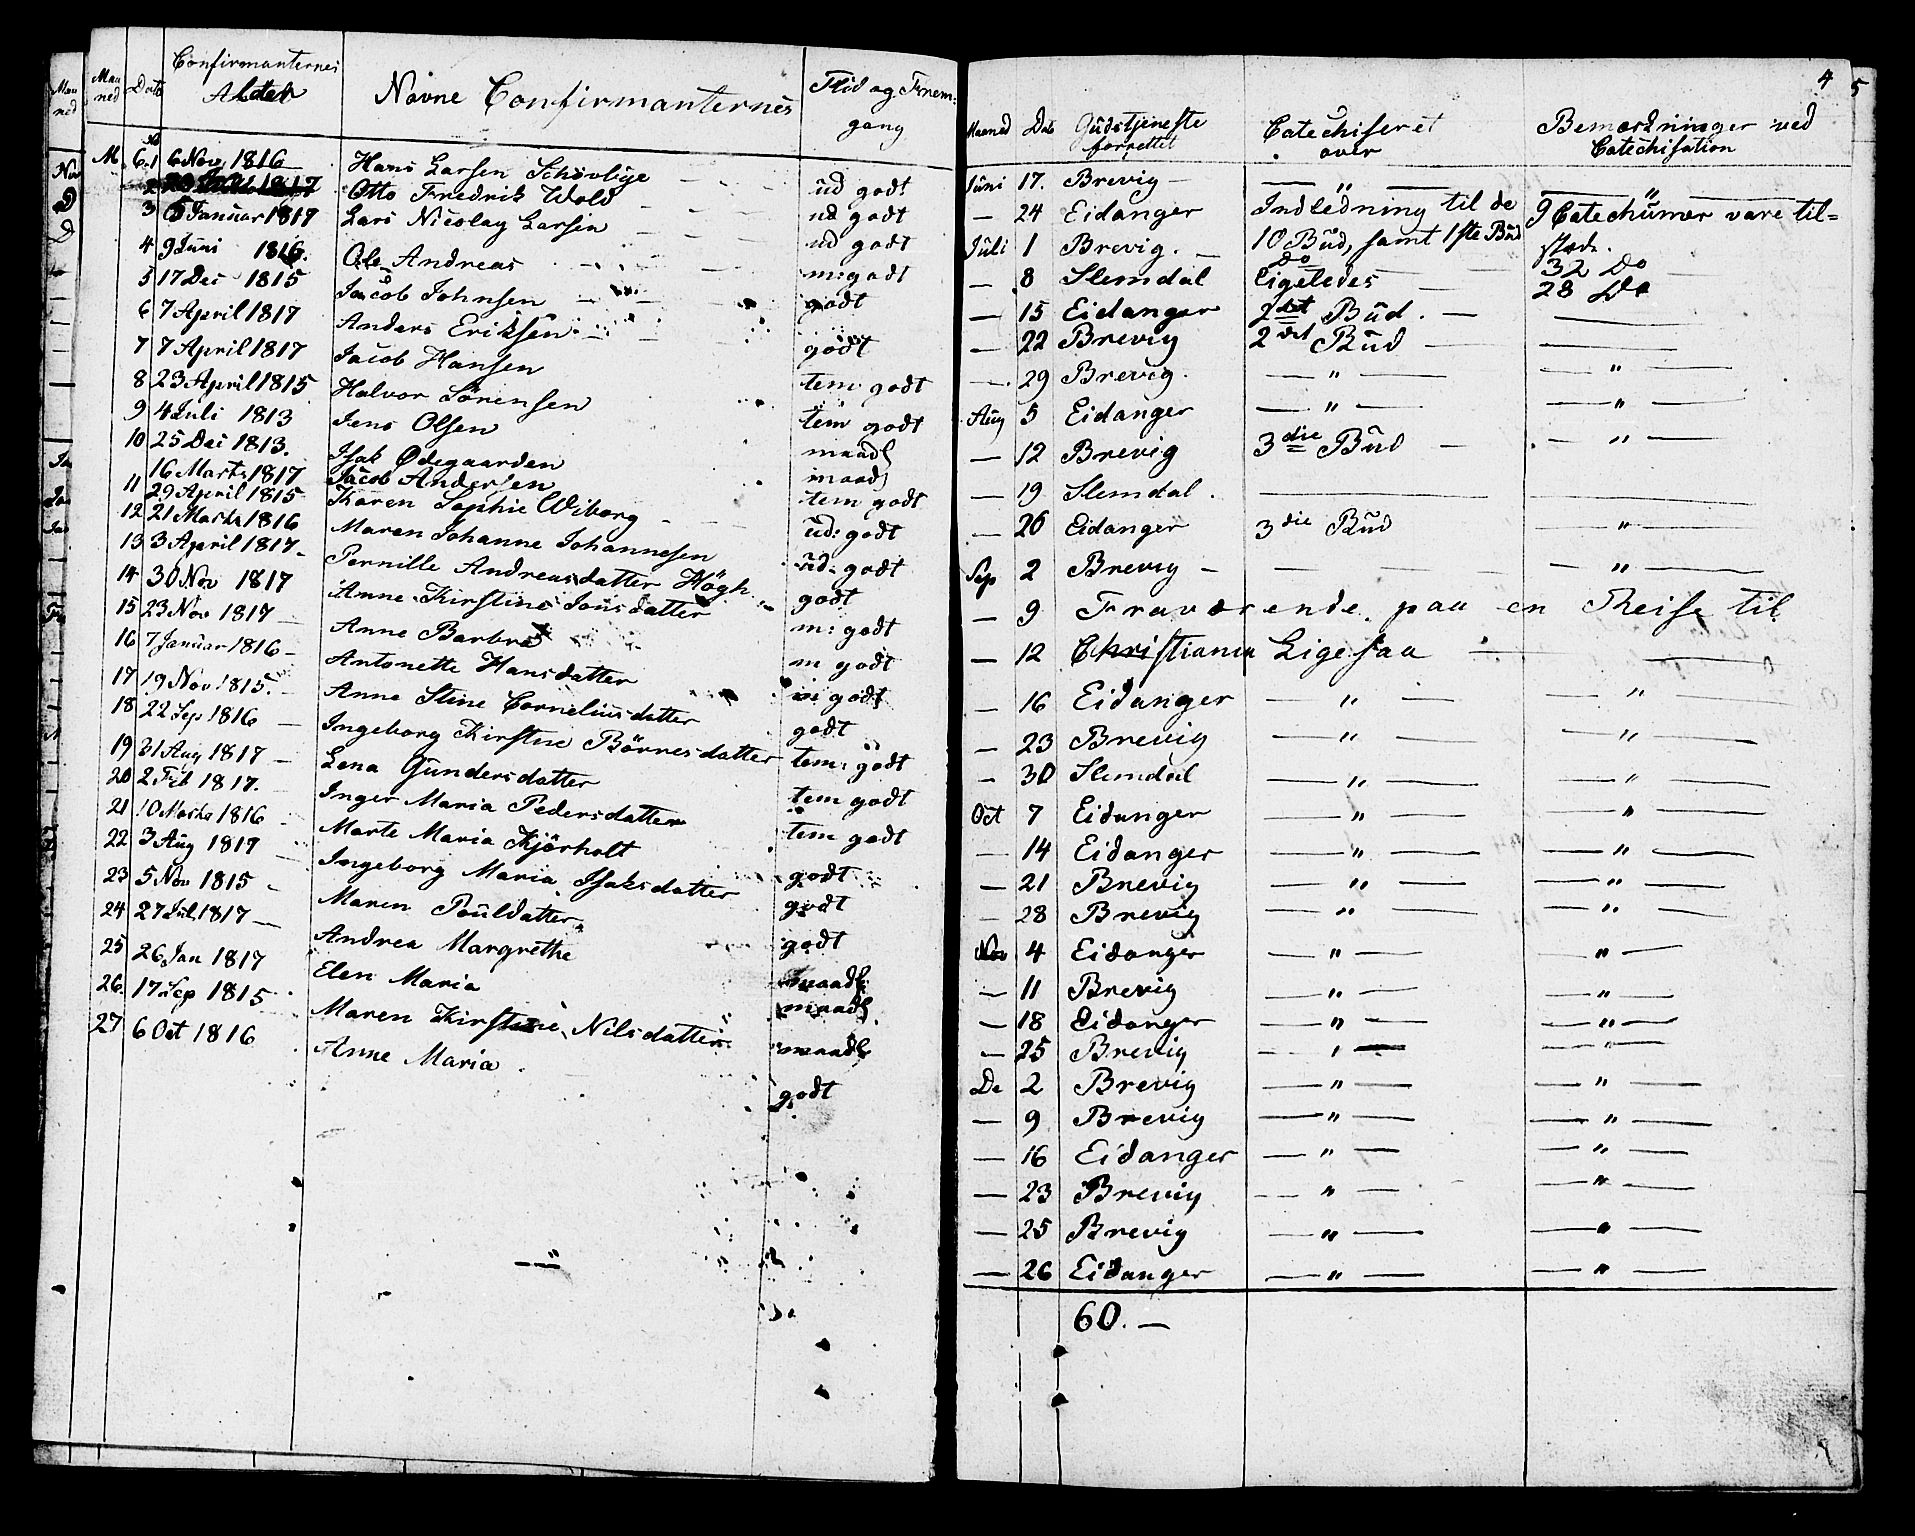 Maaned Dato Confirmanternes Alder Navne Confirmanternes Flid og Fremgang
M. 6. 1 6 Nov 1816 Hans Larsen Schovlye ud godt
2 Otto Fredrik Wold ud godt
3 6 Januar 1817 Lars Nicolay Larsen ud godt
4 9 Juni 1816. Ole Andreas m: godt
5 17 Dec 1815 Jacob Johnsen godt
6 7 April 1817 Anders Eriksen godt
7 7 April 1817 Jacob Hansen tem godt
8 23 April 1815 Halvor Sörensen tem godt
9 4 Juli 1813 Jens Olsen maadl
10 25 Dec 1813. Isak Ødegaarden maadl
16 Marts 1817 Jacob Andersen
11 29 April 1815 Karen Sophie Wiborg tem godt
12 21 Marts 1816 Maren Johanne Johannesen ud: godt
13 3 April 1817 Pernille Andreasdatter Högh ud: godt
14 30 Nov 1817 Anne Kirstine Jonsdatter godt
15 23 Nov 1817 Anne Barbra m: godt
16 7 Januar 1816 Antonette Hansdatter m godt
17 19 Nov 1815. Anne Stine Corneliusdatter m godt
18 22 Sep 1816 Ingeborg Kirstine Börresdatter godt
19 31 Aug 1817 Lena Gundersdatter tem: godt
20 2 Feb 1817. Inger Maria Pedersdatter tem godt
21 10 Marts 1816 Marte Maria Kjörholt tem godt
22 3 Aug 1817 Ingeborg Maria Isaksdatter godt
23 5 Nov 1815 Maren Pouldatter godt
24 27 Jul 1817 Andrea Margrethe godt
25 26 Jan 1817 Elen Maria maadl
26. 17 Sep 1815 Maren Kirstine Nilsdatter maadl
27 6 Oct 1816 Anne Maria godt
4
5
Maaned Dato Gudstjeneste forrettet Catechiseret over Bemærkninger ved Catechisation
Juni 17. Brevig — — —
— 24 Eidanger Indledning til de 9 Catechumer vare til=
Juli 1 Brevig. — 10 Bud, samt 1ste Bud stæde.
— 8 Slemdal Ligeledes — 32 Do
28 Do
— 15 Eidanger 2det Bud. — —
— 22 Brevig 2det Bud — —
— 29 Brevig. — " — — " —
Aug 5 Eidanger — " — — " —
— 12 Brevig 3die Bud — — " —
— 19 Slemdal. — —
— 26 Eidanger 3die Bud — " —
Sep 2 Brevig — — — " —
— 9 Fraværende paa en Reise til
— 12 Christiania Ligesaa — —
— 16 Eidanger — " — — " —
— 23 Brevig — " — — " —
— 30 Slemdal — " — — " —
Oct 7 Eidanger — " — — " —
— 14 Eidanger — " — — " —
— 21 Brevig — " — — " —
— 28 Brevig — " — — " —
Nov 4 Eidanger — " — — " —
— 11 Brevig — " — — " —
— 18 Eidanger — " — — " —
— 25 Brevig — " — — " —
De 2 Brevig — " — — " —
— 9 Brevig — " — — " —
— 16 Eidanger — " — — " —
— 23 Brevig — " — — " —
— 25 Brevig — " — — " —
— 26 Eidanger — " — — " —
60. —